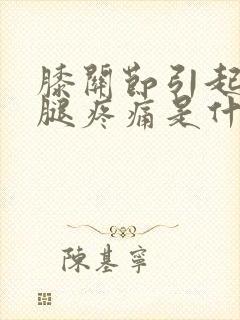 膝關節引起
腿疼痛是什
陳基寧